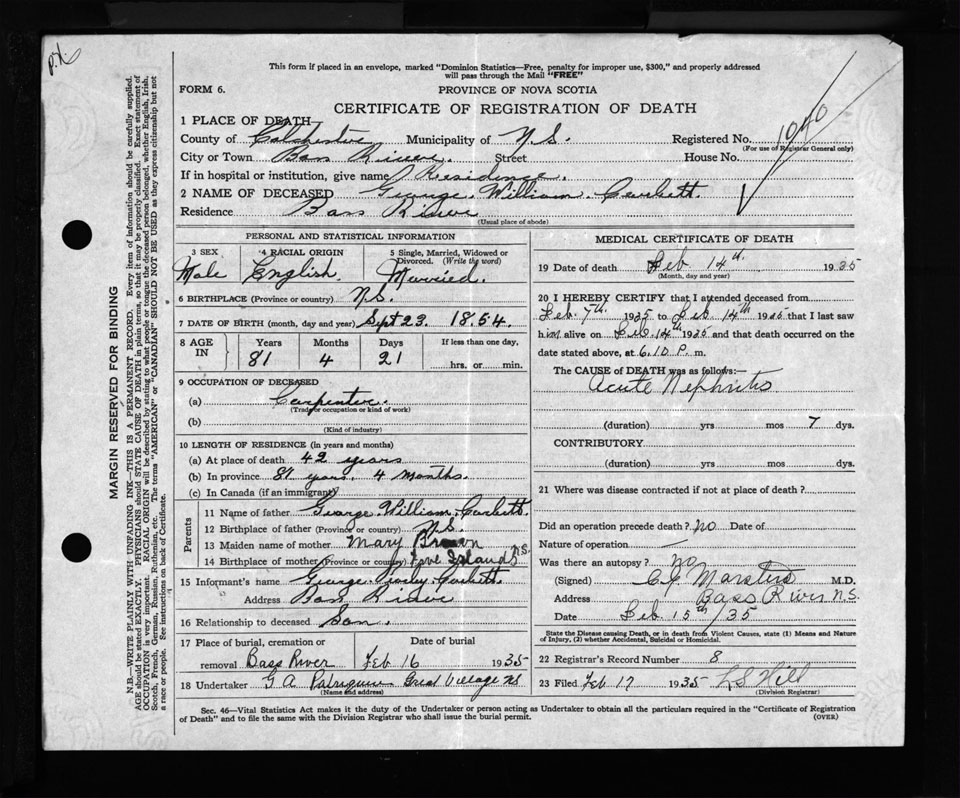 P.X.
This form if placed in an envelope, marked "Dominion Statistics—Free, penalty for improper use, $300," and properly addressed
will pass through the Mail "FREE"
FORM 6.
PROVINCE OF NOVA SCOTIA
CERTIFICATE OF REGISTRATION OF DEATH
1 PLACE OF DEATH
County of Colchester Municipality of N.S. Registered No. 1040
(For use of Registrar General only)
City or Town Bass River. Street House No.
If in hospital or institution, give name Residence.
2 NAME OF DECEASED George William Corbett.
Residence Bass River
(Usual place of abode)
PERSONAL AND STATISTICAL INFORMATION
3 SEX 4 RACIAL ORIGIN 5 Single, Married, Widowed or
Divorced. (Write the word)
Male English. Married.
6 BIRTHPLACE (Province or country) N.S.
7 DATE OF BIRTH (month, day and year) Sept 23. 1854.
8 AGE IN Years Months Days If less than one day,
81 4 21 hrs. or min.
9 OCCUPATION OF DECEASED
(a) Carpenter.
(Trade or occupation or kind of work)
(b)
(Kind of industry)
10 LENGTH OF RESIDENCE (in years and months)
(a) At place of death 42 years
(b) In province 81 years. 4 months.
(c) In Canada (if an immigrant)
Parents
11 Name of father George William Corbett.
12 Birthplace of father (Province or country) N.S.
13 Maiden name of mother Mary Brown
14 Birthplace of mother (Province or country) Five Islands N.S.
15 Informant's name George Corbett.
Address Bass River
16 Relationship to deceased Son.
17 Place of burial, cremation or Date of burial
removal Bass River Feb 16 1935
18 Undertaker G A Great Village NS
(Name and address)
MEDICAL CERTIFICATE OF DEATH
19 Date of death Feb 14th. 1935
(Month, day and year)
20 I HEREBY CERTIFY that I attended deceased from
Feb. 7th. 1935 to Feb. 14th 1935 that I last saw
him alive on Feb. 14th 1935 and that death occurred on the
date stated above, at 6.10 P. m.
The CAUSE of DEATH was as follows:—
Acute Nephritis
(duration) yrs mos 7 dys.
CONTRIBUTORY
(duration) yrs. mos dys.
21 Where was disease contracted if not at place of death?
Did an operation precede death? no Date of
Nature of operation —
Was there an autopsy? no
(Signed) Marsters M.D.
Address Bass River N.S.
Date Feb. 15th/35
State the Disease causing Death, or in death from Violent Causes, state (1) Means and Nature
of Injury, (2) whether Accidental, Suicidal or Homicidal.
22 Registrar's Record Number 8
23 Filed Feb 17 1935 L S Hill
(Division Registrar)
Sec. 46—Vital Statistics Act makes it the duty of the Undertaker or person acting as Undertaker to obtain all the particulars required in the "Certificate of Registration
of Death" and to file the same with the Division Registrar who shall issue the burial permit.
(OVER)
MARGIN RESERVED FOR BINDING
N.B.—WRITE PLAINLY WITH UNFADING INK—THIS IS A PERMANENT RECORD. Every item of information should be carefully supplied.
AGE should be stated EXACTLY. PHYSICIANS should STATE CAUSE OF DEATH in plain terms, so that it may be properly classified. Exact statement of
OCCUPATION is very important. RACIAL ORIGIN will be described by stating to what people or tongue the deceased person belonged, whether English, Irish,
Scotch, French, German, Russian, Ruthenian, etc. The terms "AMERICAN" or "CANADIAN" SHOULD NOT BE USED as they express citizenship but not
a race or people. See instructions on back of Certificate.